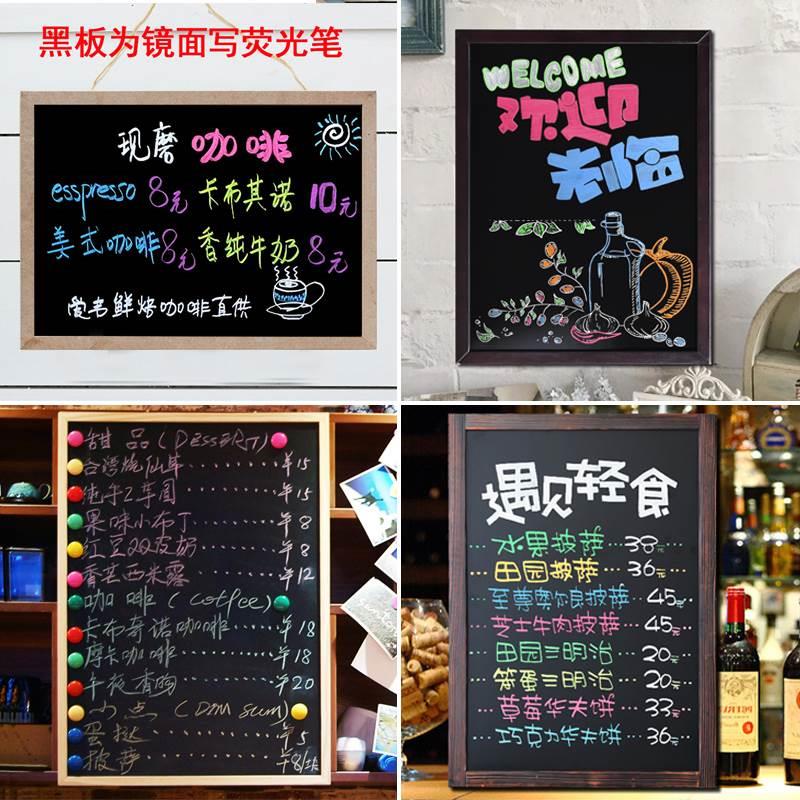 黑板为镜面写荧光笔
现磨咖啡
esspresso 8元 卡布其诺 10元
美式咖啡 8元 香纯牛奶 8元
鲜烤咖啡直供
WELCOME
欢迎
光临
甜品(DESSERT)
台湾烧仙草 ¥15
¥15
果味小布丁 ¥8
红豆双皮奶 ¥8
香芒西米露 ¥12
咖啡(Coffee)
卡布奇诺咖啡 ¥18
摩卡咖啡 ¥18
午夜香吻 ¥20
小点(DIM SUM)
蛋挞 ¥5
披萨 ¥8/
遇见轻食
水果披萨 38元
田园披萨 36元
至尊奥尔良披萨 45元
芝士牛肉披萨 45元
田园三明治 20元
笨蛋三明治 20元
草莓华夫饼 33元
巧克力华夫饼 36元